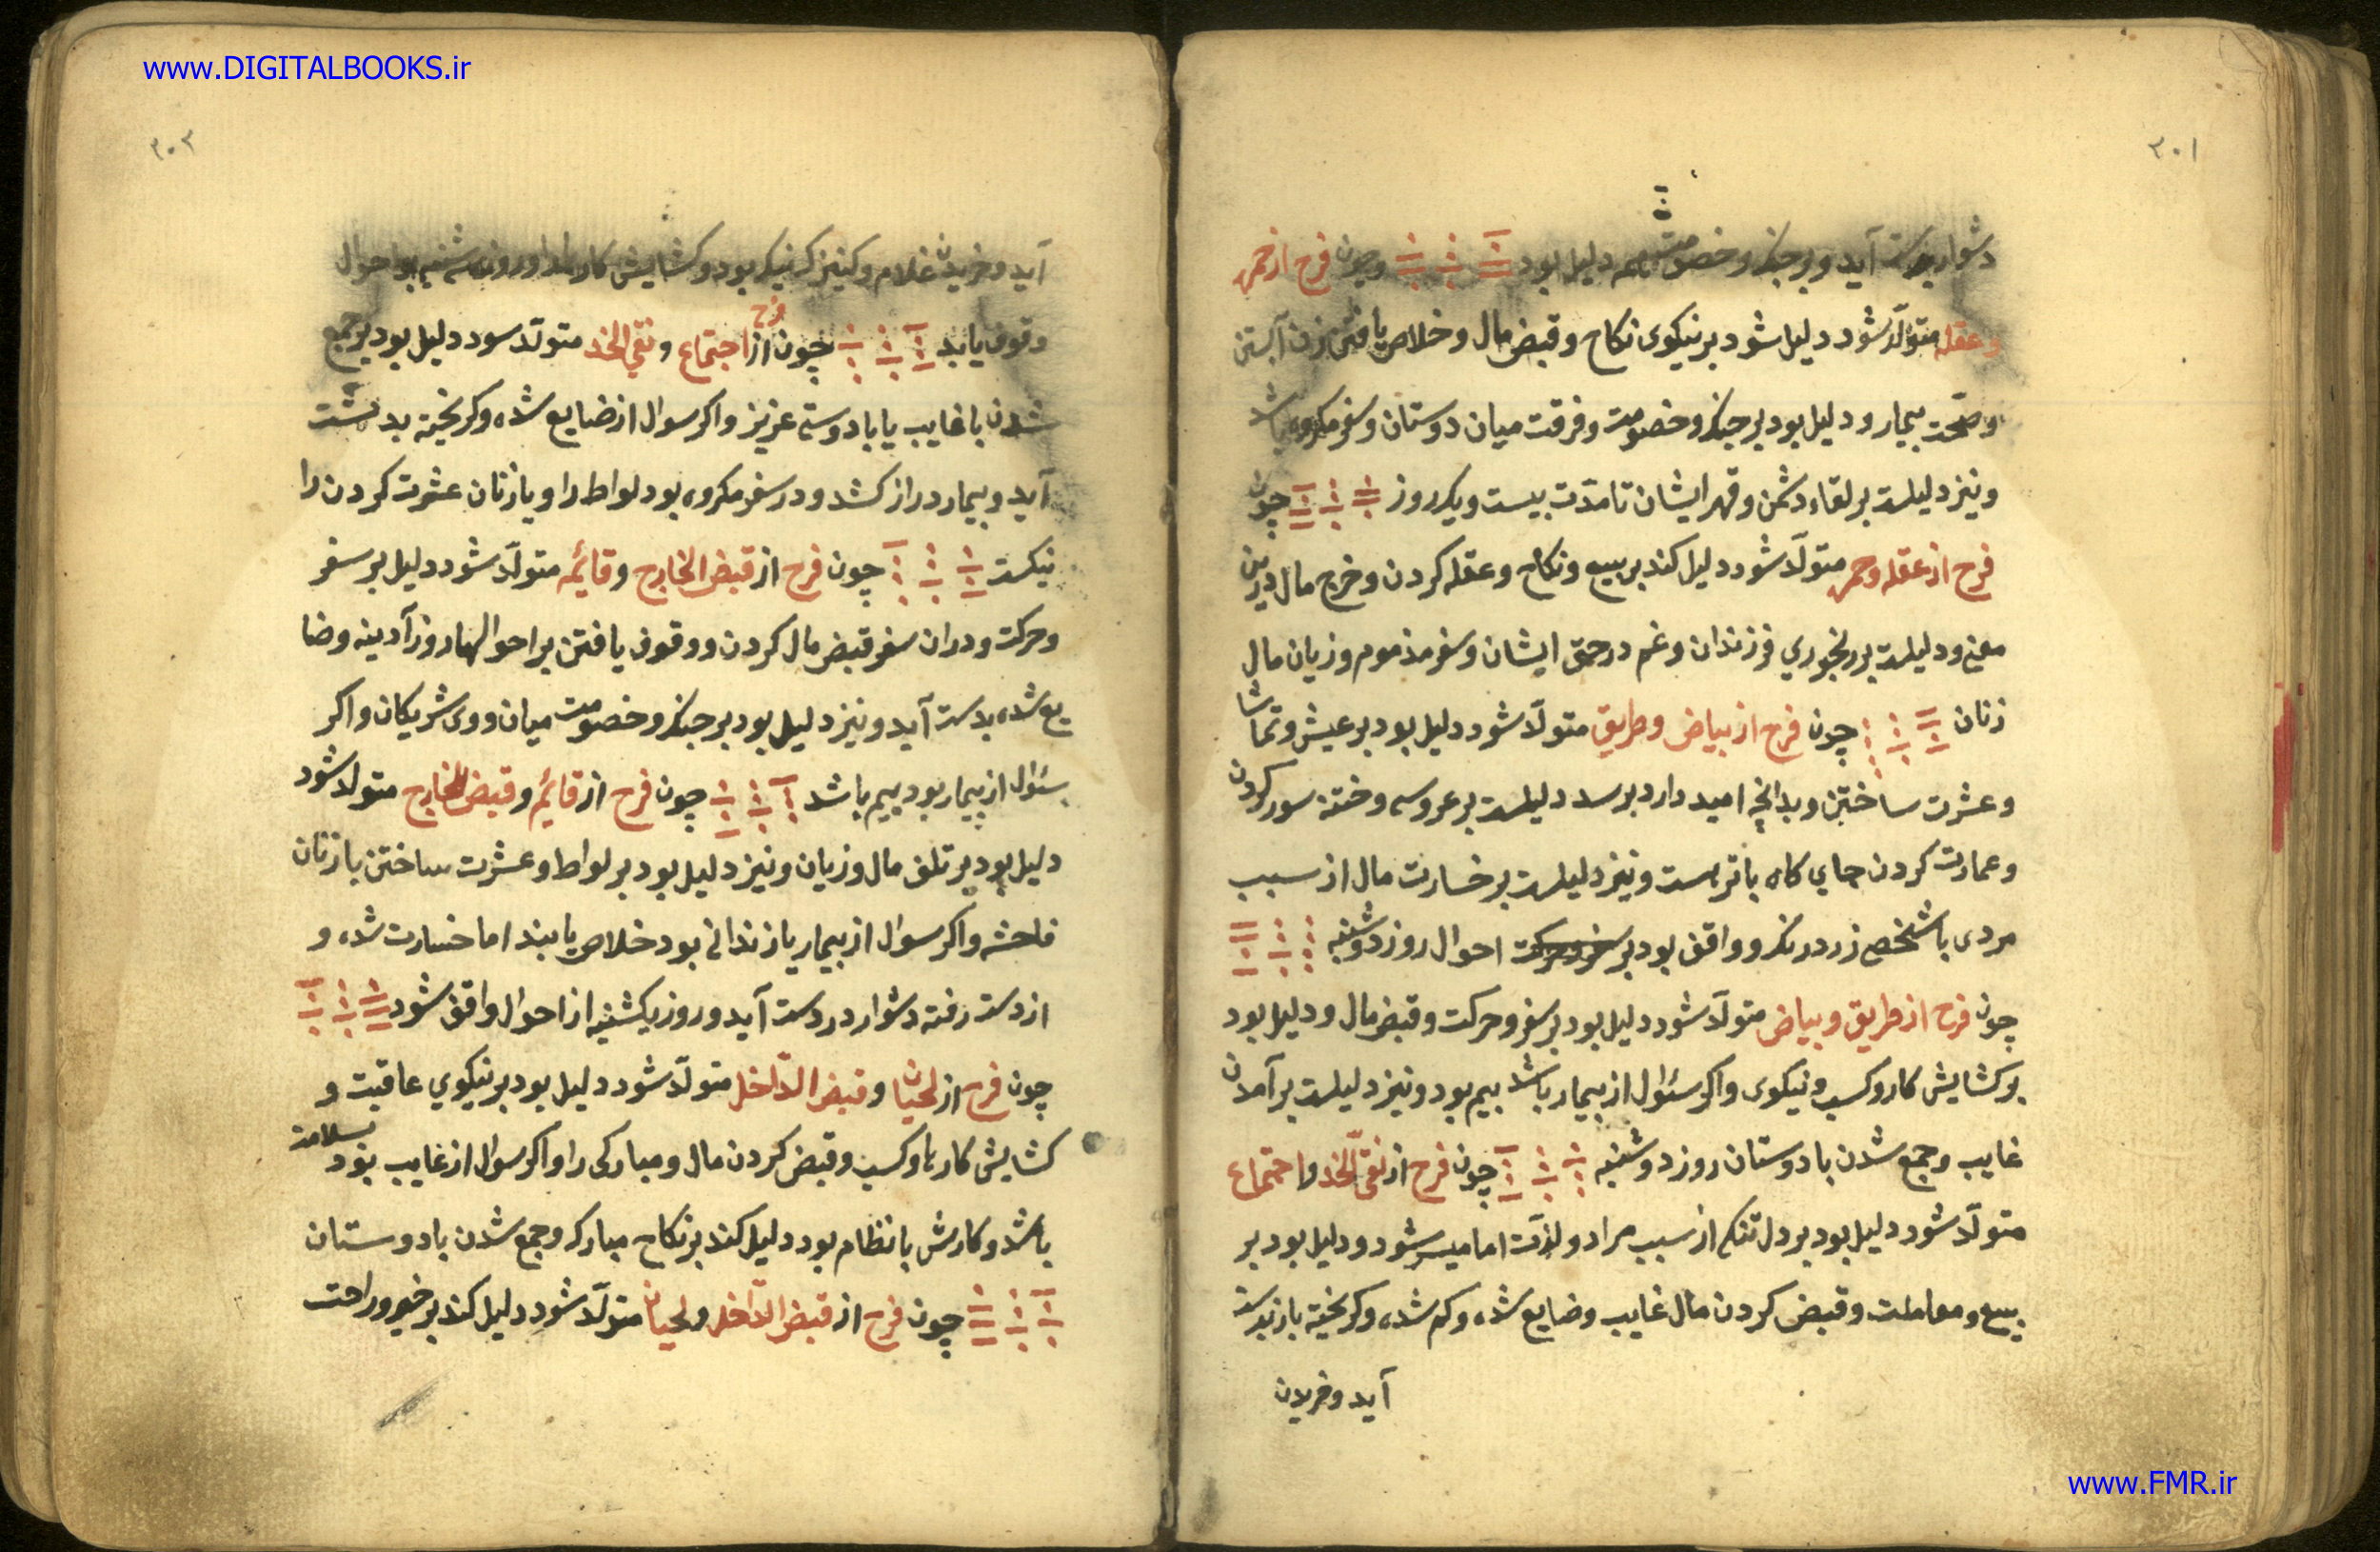 www.DIGITALBOOKS.ir
٣٠١
دشوار بدست آید و بر جنك و خصومت هم دلیل بود و چون فرح از حمره
و عقله متولّد شود دلیل شود بر نیکوی نکاح و قبض مال و خلاص یافتن زن آبستن
و صحّت بیمار و دلیل بود بر جنك و خصومت و فرقت میان دوستان و سفر مکروه باشد
و نیز دلیلست بر لقاء دشمن و قهر ایشان تا مدّت بیست و یکروز چون
فرح از عقله و حمره متولّد شود دلیل کند بر بیع و نکاح و عقله کردن و خرج مال درین
معنی و دلیلست بر رنجوري فرزندان و غم در حق ایشان و سفر مذموم و زیان مال
زنان چون فرح از بیاض و طریق متولّد شود دلیل بود بر عیش و تماشا
و عشرت ساختن و بدانچه امید دارد برسد دلیلست بر عروسی و ختنه سور کردن
و عمارت کردن جاي کاه با تربست و نیز دلیلست بر خسارت مال از سبب
مردی با شخص زرد رنك و واقف بود بر احوال روز دوشنبه
چون فرح از طریق و بیاض متولّد شود دلیل بود بر سفر و حرکت و قبض مال و دلیل بود
بر کشایش کار و کسب و نیکوی و اکر سئوال از بیمار باشد بیم بود و نیز دلیلست بر آمدن
غایب و جمع شدن با دوستان روز دوشنبه چون فرح از نقیّ الخد و اجتماع
متولّد شود دلیل بود بر دل تنکی از سبب مراد و لذّت اما میسر شود و دلیل بود بر
بیع و معاملت و قبض کردن مال غایب و ضایع شده و کم شده و کریخته باز بدست
آید و خریدن
٣٠٢
آید و خریدن غلام و کنیزك نیك بود و کشایش کارها و روز سه شنبه بر احوال
وقوف یابد چون فرح از اجتماع و نقی الخد متولّد سود دلیل بود بر جمع
شدن با غایب یا با دوستی عزیز و اکر سوال از ضایع شده و کریخته بدست
آید و بیمار دراز کشد و در سفر مکروه بود لواط را و با زنان عشرت کردن را
نیکست چون فرح از قبض الخارج و قائمه متولّد شود دلیل بر سفر
و حرکت و دران سفر قبض مال کردن و وقوف یافتن بر احوالها روز آدینه و ضا
یع شده بدست آید و نیز دلیل بود بر جنك و خصومت میان ووی شریکان و اکر
سئوال از بیمار بود بیم باشد چون فرح از قائم و قبض الخارج متولد شود
دلیل بود بر تلف مال و زیان و نیز دلیل بود بر لواط و عشرت ساختن با زنان
فاحشه و اکر سوال از بیمار یا زندانی بود خلاص یابند اما خسارت شده و
از دست رفته دشوار در دست آید و روز یکشنبه از احوال واقف شود
چون فرح از لحیان و قبض الدّاخل متولّد شود دلیل بود بر نیکوي عاقبت و
کشایش کارها و کسب و قبض کردن مال و مبارکی را و اکر سوال از غایب بود بسلامت
باشد و کارش با نظام بود دلیل کند بر نکاح مبارك و جمع شدن با دوستان
چون فرح از قبض الدّاخل و لحیان متولّد شود دلیل کند بر خیر و راحت
www.FMR.ir